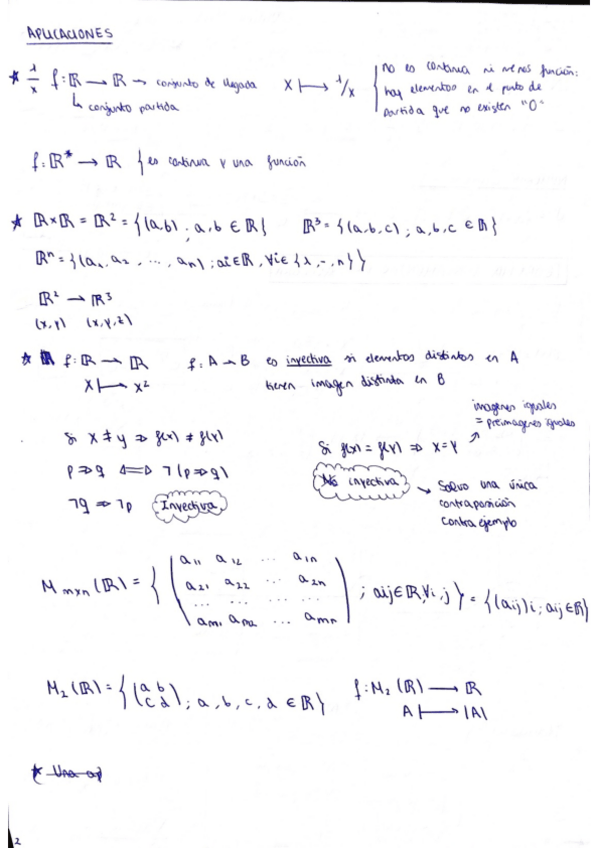 APLICACIONES
* 1/x f: ℝ → ℝ → conjunto de llegada x ↦ 1/x { no es continua ni menos función:
↳ conjunto partida hay elementos en el punto de
partida que no existen "0"
f: ℝ* → ℝ { es continua y una función
* ℝ×ℝ = ℝ² = {(a,b) ; a,b ∈ ℝ} ℝ³ = {(a,b,c) ; a,b,c ∈ ℝ}
ℝⁿ = {(a₁, a₂, ..., aₙ) ; ai ∈ ℝ, ∀i ∈ {1,-,n}}
ℝ² → ℝ³
(x,y) (x,y,z)
* f: ℝ → ℝ f: A → B es inyectiva si elementos distintos en A
x ↦ x² tienen imagen distinta en B
imagenes iguales
= preimagenes iguales
Si x ≠ y ⇒ f(x) ≠ f(y) Si f(x) = f(y) ⇒ x = y
p ⇒ q ⇔ ¬(p ⇒ q) No inyectiva → Salvo una única
¬q ⇒ ¬p Inyectiva contraposición
contra ejemplo
M mxn (ℝ) = { ( a11 a12 ... a1n
a21 a22 ... a2n
... ... ... ...
am1 am2 ... amn ) ; aij ∈ ℝ, ∀i,j } = {(aij)i ; aij ∈ ℝ}
M₂(ℝ) = { (a b
c d) ; a, b, c, d ∈ ℝ } f: M₂(ℝ) → ℝ
A ↦ |A|
* Una ap
2